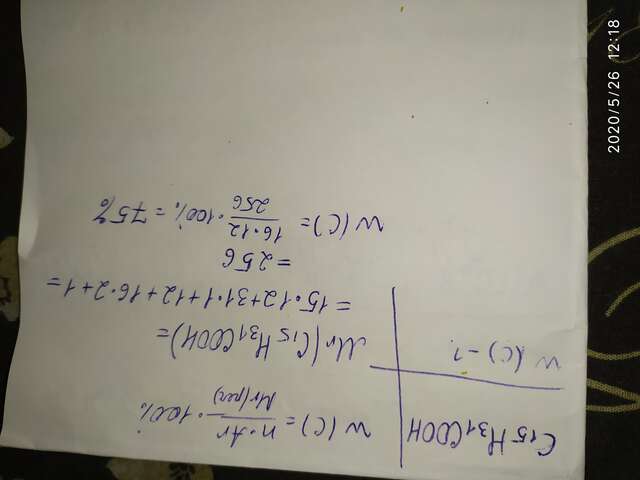 C₁₅H₃₁COOH
W(C) - ?
W(C) = n·Ar / Mr(реч) · 100%
Mr(C₁₅H₃₁COOH) =
= 15·12+31·1+12+16·2+1 =
= 256
W(C) = 16·12 / 256 · 100% = 75%
2020/5/26 12:18